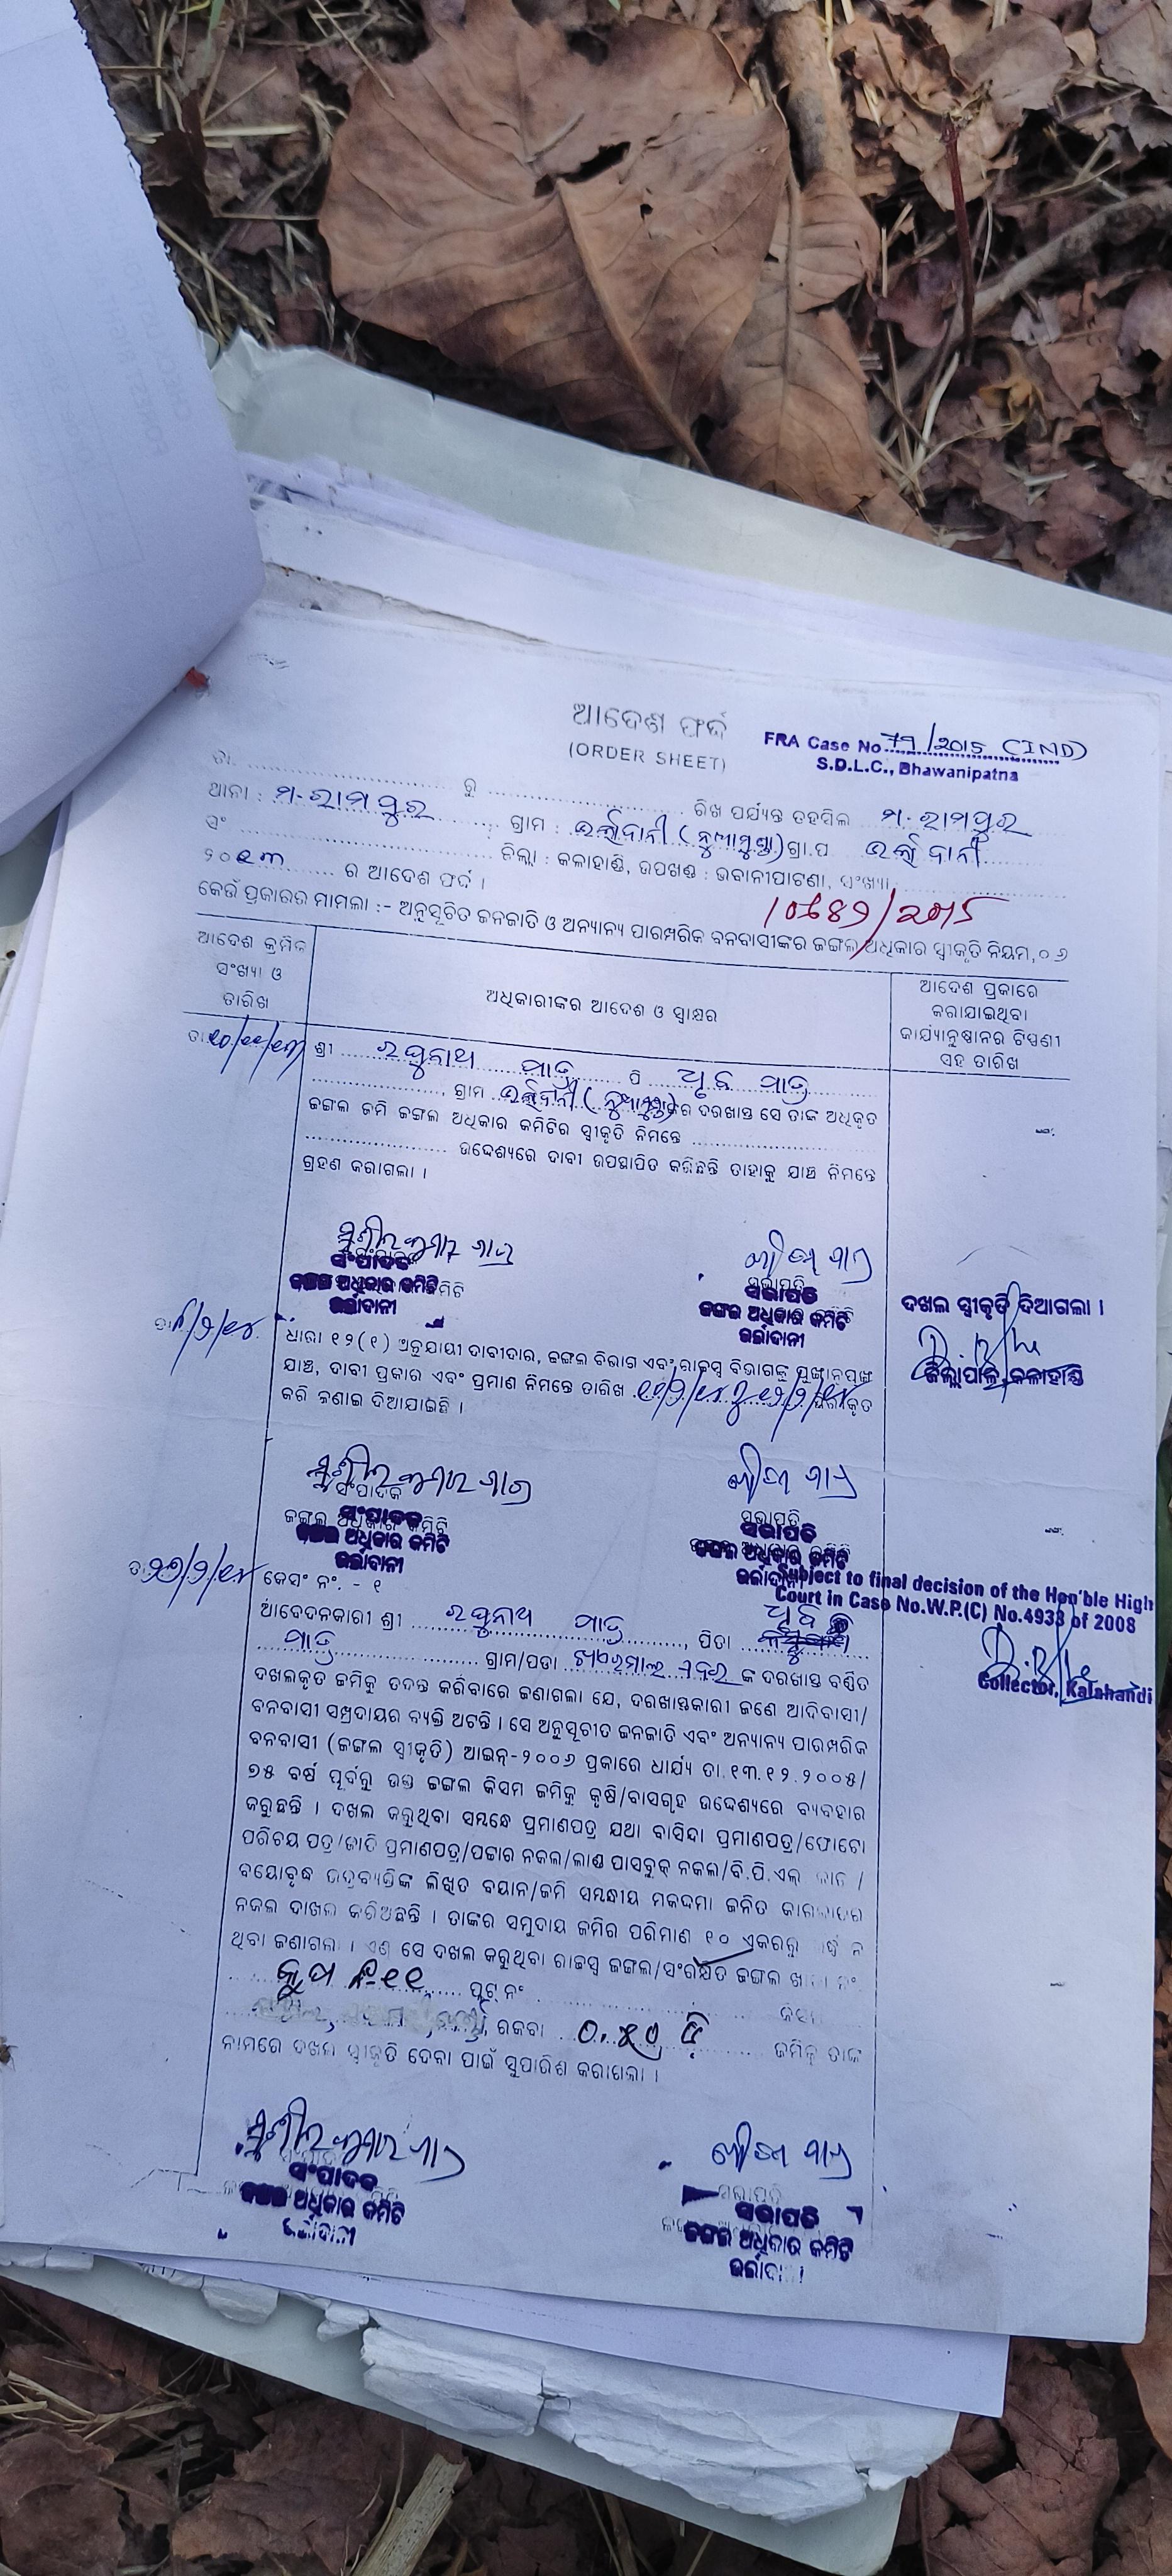 ଆଦେଶ ଫର୍ଦ୍ଦ
(ORDER SHEET)
FRA Case No 79/2015 (IND)
S.D.L.C., Bhawanipatna
ତା. ରୁ ରିଖ ପର୍ଯ୍ୟନ୍ତ ତହସିଲ ମ.ରାମପୁର
ଥାନା : ମ.ରାମପୁର ଗ୍ରାମ : ଗ୍ରା.ପ
ସଂ ଜିଲ୍ଲା : କଳାହାଣ୍ଡି, ଉପଖଣ୍ଡ : ଭବାନୀପାଟଣା, ସଂଖ୍ୟା
୨୦୧୩ ର ଆଦେଶ ଫର୍ଦ୍ଦ ।
/2015
କେଉଁ ପ୍ରକାରର ମାମଲା :- ଅନୁସୂଚିତ ଜନଜାତି ଓ ଅନ୍ୟାନ୍ୟ ପାରମ୍ପରିକ ବନବାସୀଙ୍କର ଜଙ୍ଗଲ ଅଧିକାର ସ୍ୱୀକୃତି ନିୟମ,୦୬
ଆଦେଶ କ୍ରମିକ
ସଂଖ୍ୟା ଓ
ତାରିଖ
ଅଧିକାରୀଙ୍କର ଆଦେଶ ଓ ସ୍ୱାକ୍ଷର
ଆଦେଶ ପ୍ରକାରେ
କରାଯାଇଥିବା
କାର୍ଯ୍ୟାନୁଷ୍ଠାନର ଟିପ୍ପଣୀ
ସହ ତାରିଖ
ଶ୍ରୀ ରଘୁନାଥ ମାଝୀ ପି ଧୂବ ମାଝୀ
ଗ୍ରାମ ଙ୍କର ଦରଖାସ୍ତ ସେ ତାଙ୍କ ଅଧିକୃତ
ଜଙ୍ଗଲ ଜମି ଜଙ୍ଗଲ ଅଧିକାର କମିଟିର ସ୍ୱୀକୃତି ନିମନ୍ତେ
ଉଦ୍ଦେଶ୍ୟରେ ଦାବୀ ଉପସ୍ଥାପିତ କରିଛନ୍ତି ତାହାକୁ ଯାଞ୍ଚ ନିମନ୍ତେ
ଗ୍ରହଣ କରାଗଲା ।
ସଂପାଦକ
ଜଙ୍ଗଲ ଅଧିକାର କମିଟି
ଉର୍ଲାଦାନୀ
ସଭାପତି
ଜଙ୍ଗଲ ଅଧିକାର କମିଟି
ଉର୍ଲାଦାନୀ
ଦଖଲ ସ୍ୱୀକୃତି ଦିଆଗଲା ।
ଜିଲ୍ଲାପାଳ, କଳାହାଣ୍ଡି
ଧାରା ୧୨(୧) ଅନୁଯାୟୀ ଦାବୀଦାର, ଜଙ୍ଗଲ ବିଭାଗ ଏବଂ ରାଜସ୍ୱ ବିଭାଗଙ୍କୁ ପୁଙ୍ଖାନୁପୁଙ୍ଖ
ଯାଞ୍ଚ, ଦାବୀ ପ୍ରକାର ଏବଂ ପ୍ରମାଣ ନିମନ୍ତେ ତାରିଖ
କରି ଜଣାଇ ଦିଆଯାଇଛି ।
ସଂପାଦକ
ଜଙ୍ଗଲ ଅଧିକାର କମିଟି
ଉର୍ଲାଦାନୀ
ସଭାପତି
ଜଙ୍ଗଲ ଅଧିକାର କମିଟି
Subject to final decision of the Hon'ble High
Court in Case No.W.P.(C) No.4933 of 2008
Collector, Kalahandi
କେସଂ ନଂ. - ୧
ଆବେଦନକାରୀ ଶ୍ରୀ ରଘୁନାଥ ମାଝୀ, ପିତା ଧୂବ
ମାଝୀ ଗ୍ରାମ/ପଡା ଙ୍କ ଦରଖାସ୍ତ ବର୍ଣ୍ଣିତ
ଦଖଲକୃତ ଜମିକୁ ତଦନ୍ତ କରିବାରେ ଜଣାଗଲା ଯେ, ଦରଖାସ୍ତକାରୀ ଜଣେ ଆଦିବାସୀ/
ବନବାସୀ ସମ୍ପ୍ରଦାୟର ବ୍ୟକ୍ତି ଅଟନ୍ତି । ସେ ଅନୁସୂଚୀତ ଜନଜାତି ଏବଂ ଅନ୍ୟାନ୍ୟ ପାରମ୍ପରିକ
ବନବାସୀ (ଜଙ୍ଗଲ ସ୍ୱୀକୃତି) ଆଇନ୍-୨୦୦୬ ପ୍ରକାରେ ଧାର୍ଯ୍ୟ ତା.୧୩.୧୨.୨୦୦୫/
୭୫ ବର୍ଷ ପୂର୍ବରୁ ଉକ୍ତ ଜଙ୍ଗଲ କିସମ ଜମିକୁ କୃଷି/ବାସଗୃହ ଉଦ୍ଦେଶ୍ୟରେ ବ୍ୟବହାର
କରୁଛନ୍ତି । ଦଖଲ କରୁଥିବା ସମ୍ବନ୍ଧେ ପ୍ରମାଣପତ୍ର ଯଥା ବାସିନ୍ଦା ପ୍ରମାଣପତ୍ର/ଫୋଟୋ
ପରିଚୟ ପତ୍ର/ଜାତି ପ୍ରମାଣପତ୍ର/ପଟ୍ଟାର ନକଲ/ଲାଣ୍ଡ ପାସବୁକ୍ ନକଲ/ବି.ପି.ଏଲ୍ /
ବୟୋବୃଦ୍ଧ ଭଦ୍ରବ୍ୟକ୍ତିଙ୍କ ଲିଖିତ ବୟାନ/ଜମି ସମ୍ବନ୍ଧୀୟ ମକଦ୍ଦମା ଜନିତ
ନକଲ ଦାଖଲ କରିଅଛନ୍ତି । ତାଙ୍କର ସମୁଦାୟ ଜମିର ପରିମାଣ ୧୦ ଏକରରୁ
ଥିବା ଜଣାଗଲା । ଏଣୁ ସେ ଦଖଲ କରୁଥିବା ରାଜସ୍ୱ ଜଙ୍ଗଲ/ସଂରକ୍ଷିତ ଜଙ୍ଗଲ
ପ୍ଲଟ୍ ନଂ
ରକବା ଜମିକୁ ତାଙ୍କ
ନାମରେ ଦଖଲ ସ୍ୱୀକୃତି ଦେବା ପାଇଁ ସୁପାରିଶ କରାଗଲା ।
ସଂପାଦକ
ଜଙ୍ଗଲ ଅଧିକାର କମିଟି
ସଭାପତି
ଜଙ୍ଗଲ ଅଧିକାର କମିଟି